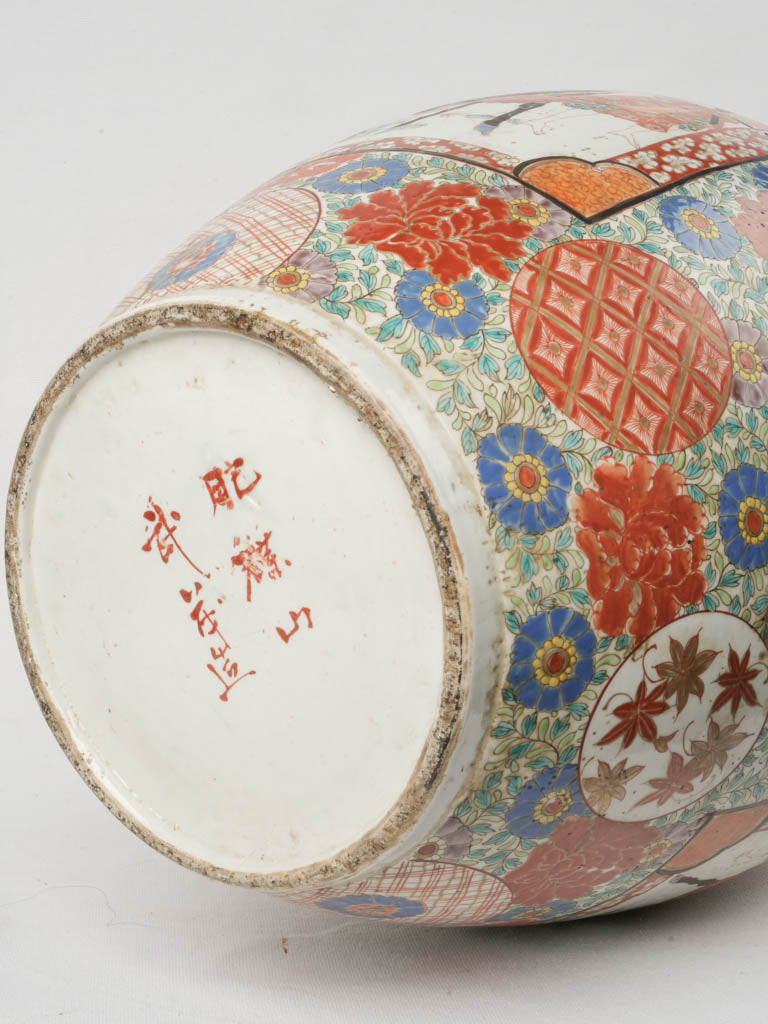 肥碟山
武茂造